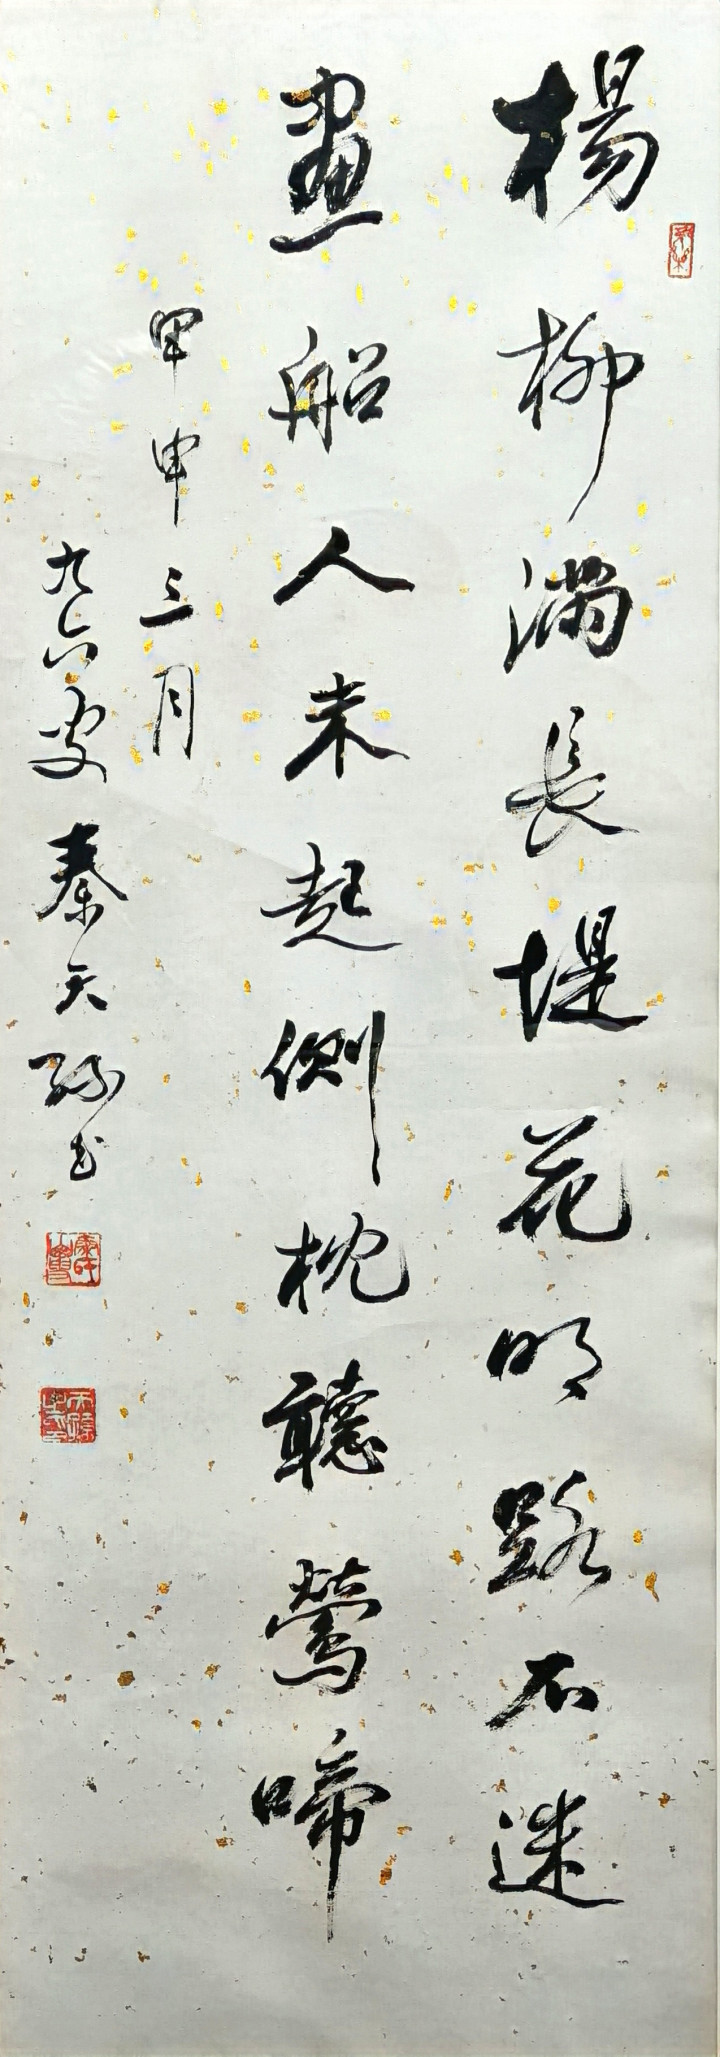 楊柳滿長堤花明路不迷
畫船人未起側枕聽鶯啼
甲申三月
九六叟秦天孫書